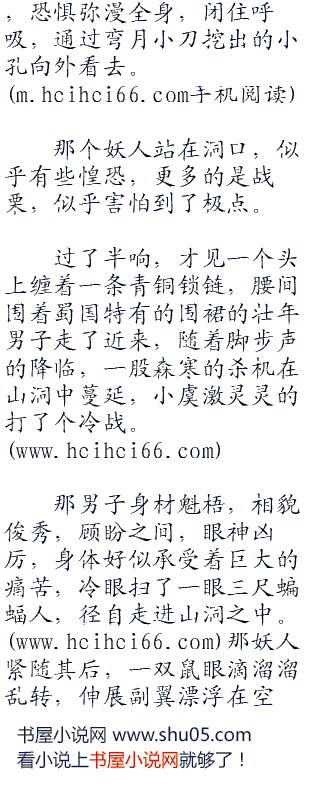 ，恐惧弥漫全身，闭住呼
吸，通过弯月小刀挖出的小
孔向外看去。
(m.hcihci66.com手机阅读)
那个妖人站在洞口，似
乎有些惶恐，更多的是战
栗，似乎害怕到了极点。
过了半响，才见一个头
上缠着一条青铜锁链，腰间
围着蜀国特有的围裙的壮年
男子走了近来，随着脚步声
的降临，一股森寒的杀机在
山洞中蔓延，小虞激灵灵的
打了个冷战。
(www.hcihci66.com)
那男子身材魁梧，相貌
俊秀，顾盼之间，眼神凶
厉，身体好似承受着巨大的
痛苦，冷眼扫了一眼三尺蝙
蝠人，径自走进山洞之中。
(www.hcihci66.com)那妖人
紧随其后，一双鼠眼滴溜溜
乱转，伸展副翼漂浮在空
书屋小说网 www.shu05.com
看小说上书屋小说网就够了！